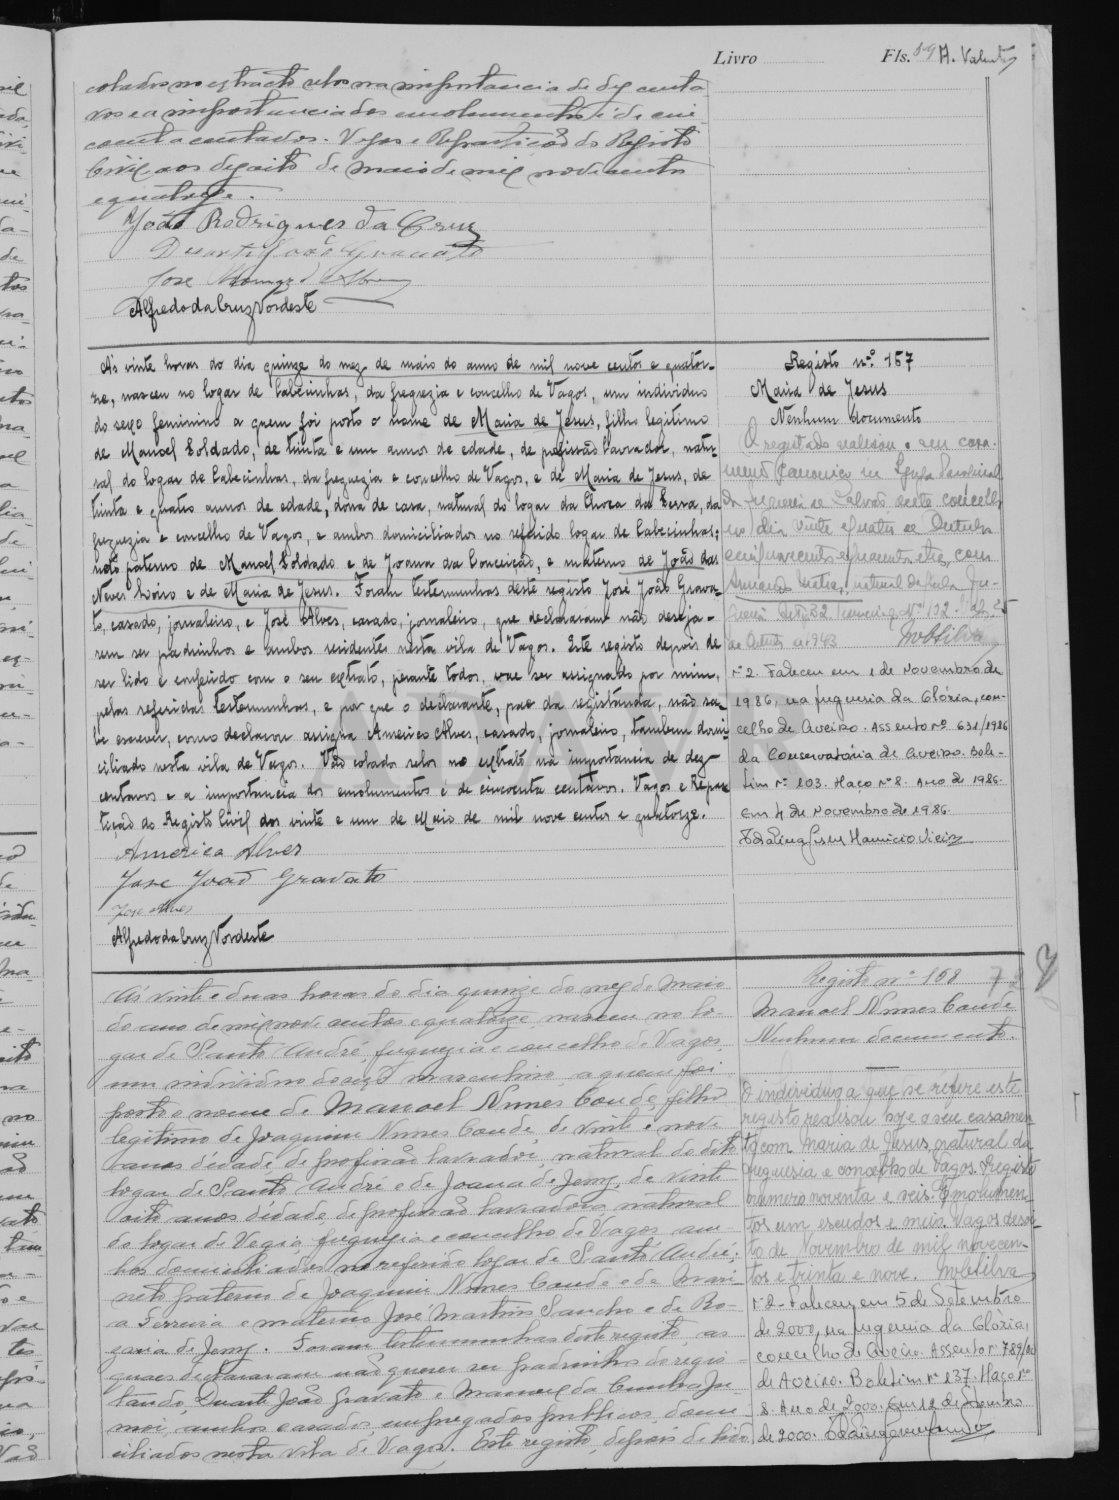 Livro Fls. 59 A. Valente
colados no extracto selos na importancia de dez centa-
vos e a importancia dos emolumentos é de cin-
coenta centavos. Vagos e Repartição do Registo
Civil aos dezoito de maio de mil nove centos
e quatorze.
João Rodrigues da Cruz
Duarte João Gravato
José
Alfredo da Cruz Nordeste
Ás vinte horas do dia quinze do mez de maio do anno de mil nove centos e quator-
ze, nasceu no logar de Cabecinhas, da freguezia e concelho de Vagos, um individuo
do sexo feminino a quem foi posto o nome de Maria de Jesus, filho legitimo
de Manoel Soldado, de trinta e um annos de edade, de profissão lavrador, natu-
ral do logar de Cabecinhas, da freguezia e concelho de Vagos, e de Maria de Jesus, de
trinta e quatro annos de edade, dona de casa, natural do logar da Choca da Serra, da
freguezia e concelho de Vagos, e ambos domiciliados no referido logar de Cabecinhas;
neto paterno de Manoel Soldado e de Joanna da Conceição, e materno de João das
Neves Loiro e de Maria de Jesus. Foram testemunhas deste registo José João Grava-
to, casado, jornaleiro, e José Alves, casado, jornaleiro, que declararam não deseja-
rem ser padrinhos e ambos residentes nesta vila de Vagos. Este registo depois de
ser lido e conferido com o seu extrato, perante todos, vae ser assignado por mim,
pelas referidas testemunhas, e por que o declarante, pae da registanda, não sa-
be escrever, como declarou assigna Americo Alves, casado, jornaleiro, tambem domi-
ciliado nesta vila de Vagos. Vão colados selos no extrato na importancia de dez
centavos e a importancia dos emolumentos é de cincoenta centavos. Vagos e Repar-
tição do Registo Civil aos vinte e um de Maio de mil nove centos e quatorze.
America Alves
Jose João Gravato
Jose Alves
Alfredo da Cruz Nordeste
Registo n.º 157
Maria de Jesus
Nenhum documento
O registado realisou o seu casa-
mento canonico na Igreja Paroquial
da freguesia de deste concelho
no dia vinte e quatro de Outubro
mil novecentos e quarenta e tres, com
natural de
de 1943 MobSilva
N.º 2. Faleceu em 1 de Novembro de
1986, na freguesia da Glória, con-
celho de Aveiro. Assento n.º 631/1986
da Conservatória de Aveiro. Bole-
tim n.º 103. Maço n.º 8. Ano de 1986.
Em 4 de Novembro de 1986.
ADAVR
Ás vinte e duas horas do dia quinze do mez de Maio
do anno de mil nove centos e quatorze, nasceu no lo-
gar de Santo André, freguezia e concelho de Vagos,
um individuo do sexo masculino, a quem foi
posto o nome de Manoel Nunes Conde, filho
legitimo de Joaquim Nunes Conde, de vinte e nove
annos d'edade, de profissão lavrador, natural do dito
logar de Santo André e de Joana de Jesus, de vinte
oito annos d'edade, de profissão lavradora, natural
do logar de Vagos, freguezia e concelho de Vagos, am-
bos domiciliados no referido logar de Santo André;
neto paterno de Joaquim Nunes Conde e de Mari-
a Ferreira e materno José Martins Sancho e de Ro-
zaria de Jesus. Foram testemunhas deste registo, as
quaes declararam não querer ser padrinhos do regis-
tando, Duarte João Gravato e Manoel da Cunha Ju-
nior, ambos casados, empregados publicos, domi-
ciliados nesta vila de Vagos. Este registo, depois de lido
Registo n.º 158
Manoel Nunes Conde
Nenhum documento.
O individuo a que se refere este
registo realisou hoje o seu casamen-
to com Maria de Jesus, natural da
freguesia e concelho de Vagos. Registo
numero noventa e seis. Emolumen-
tos um escudos e meio. Vagos dezoi-
to de Novembro de mil novecen-
tos e trinta e nove. MobSilva
N.º 2 - Faleceu em 5 de Setembro
de 2000, na freguesia da Glória,
concelho de Aveiro. Assento n.º 789/00
de Aveiro. Boletim n.º 137. Maço n.º
8. Ano de 2000. Em 12 de Setembro
de 2000.